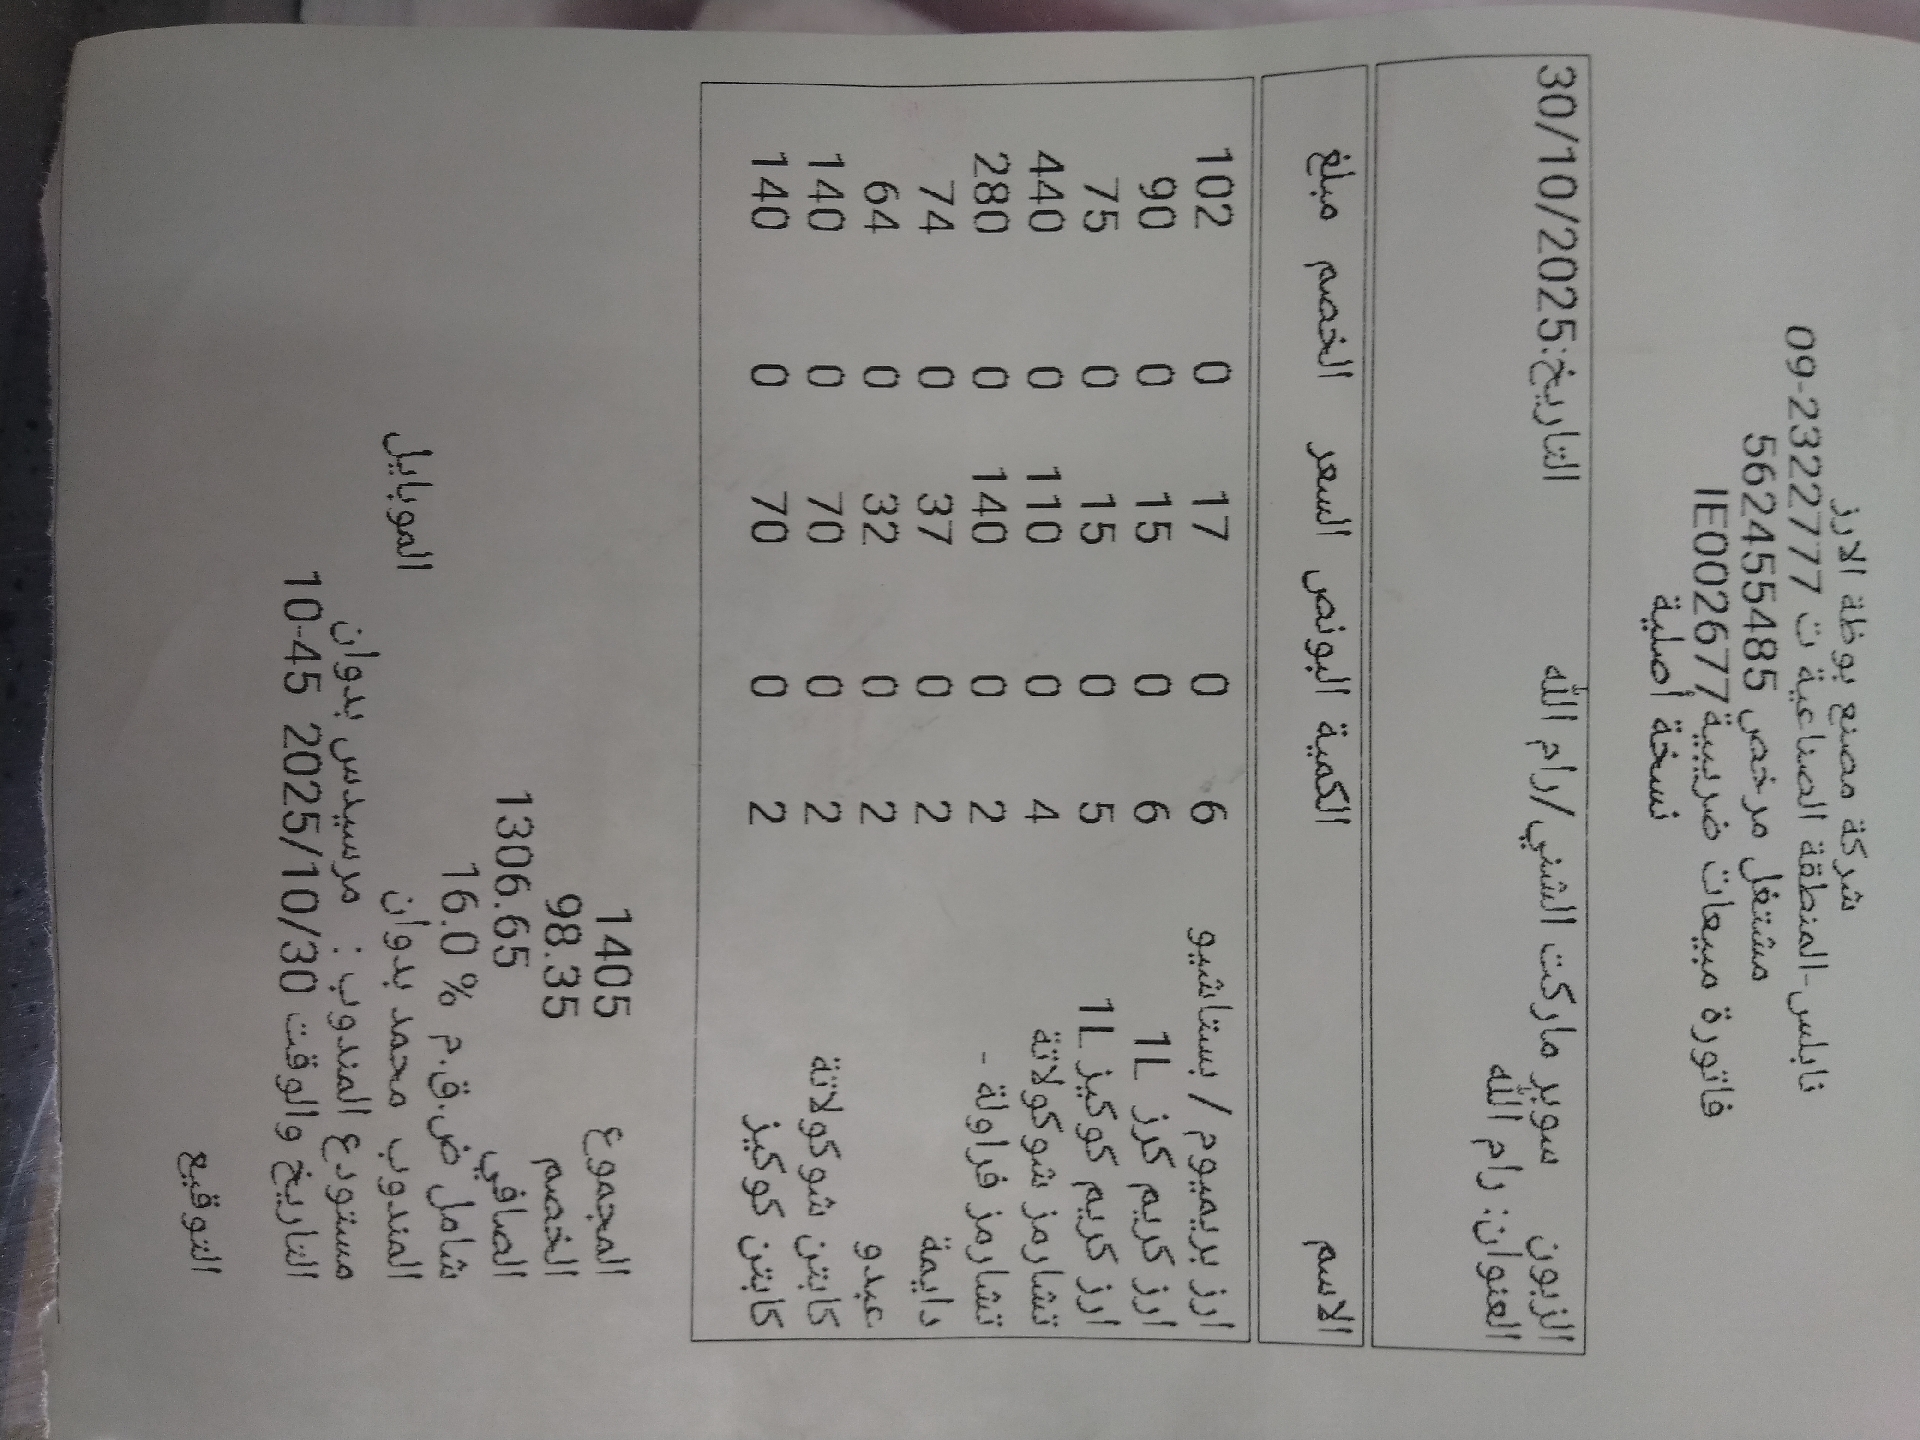 شركة مصنع بوظة الارز
نابلس-المنطقة الصناعية ت 09-2322777
مشتغل مرخص 562455485
فاتورة مبيعات ضريبية IE002677
نسخة أصلية
الزبون سوبر ماركت الشني/رام الله التاريخ:30/10/2025
العنوان: رام الله
الاسم الكمية البونص السعر الخصم مبلغ
ارز بريميوم / بستاشيو 6 0 17 0 102
ارز كريم كرز 1L 6 0 15 0 90
ارز كريم كوكيز 1L 5 0 15 0 75
تشارمز شوكولاتة 4 0 110 0 440
تشارمز فراولة - 2 0 140 0 280
دايمة 2 0 37 0 74
عبدو 2 0 32 0 64
كابتن شوكولاتة 2 0 70 0 140
كابتن كوكيز 2 0 70 0 140
المجموع 1405
الخصم 98.35
الصافي 1306.65
شامل ض.ق.م % 16.0
المندوب محمد بدوان الموبايل
مستودع المندوب : مرسيدس بدوان
التاريخ والوقت 2025/10/30 10-45
التوقيع